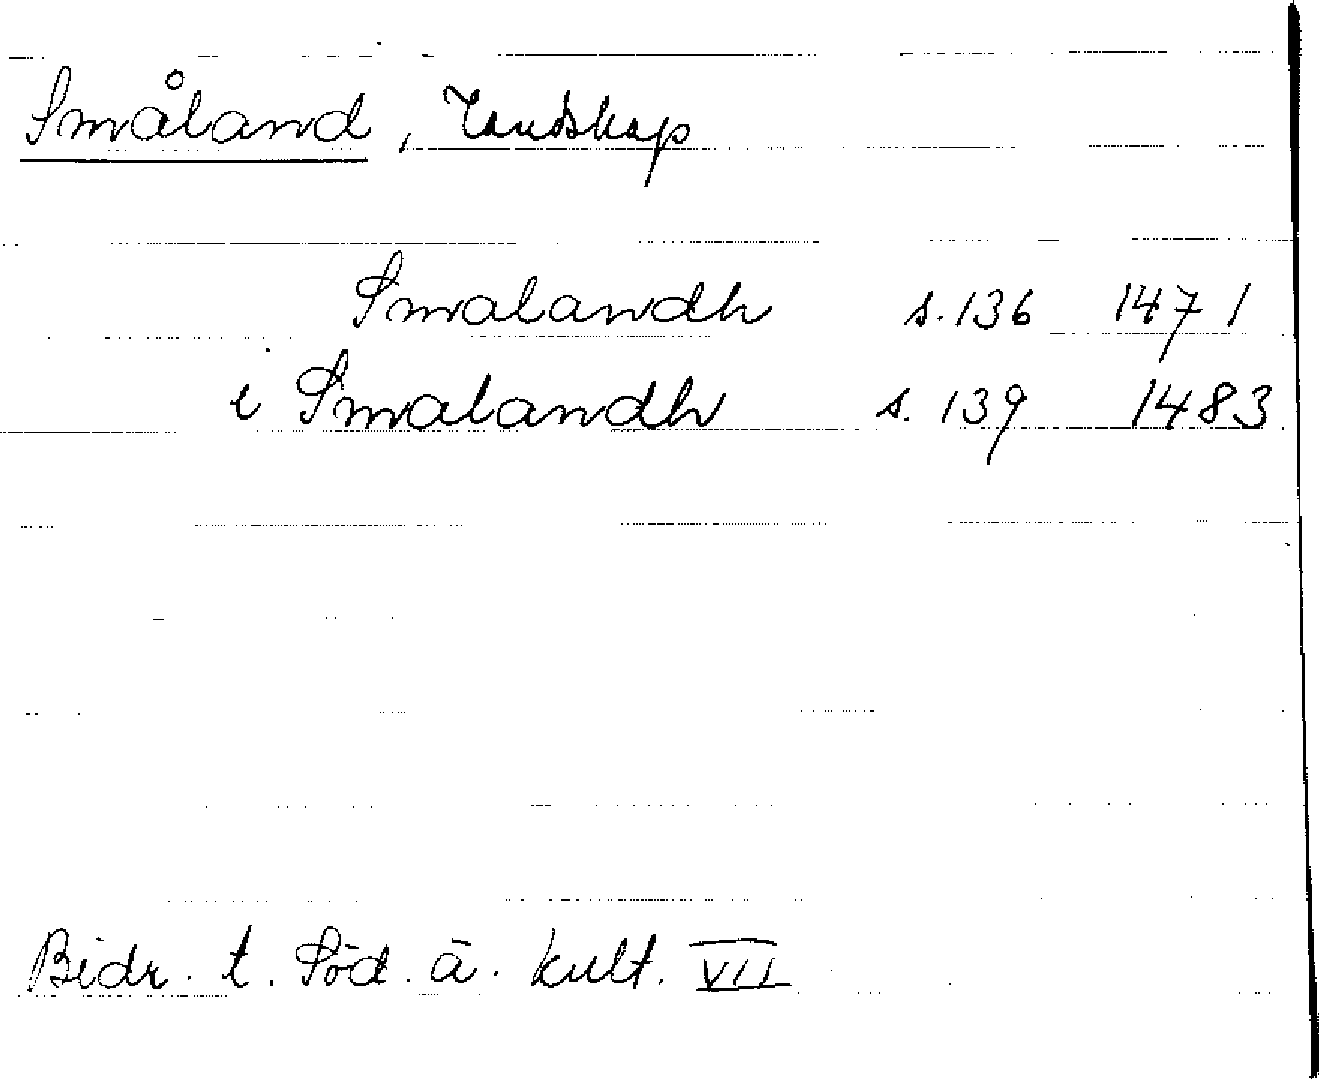 Småland, landskap
Smalandh s. 136 1471
i Smalandh s. 139 1483
Bidr. t. Söd. ä. kult. VII